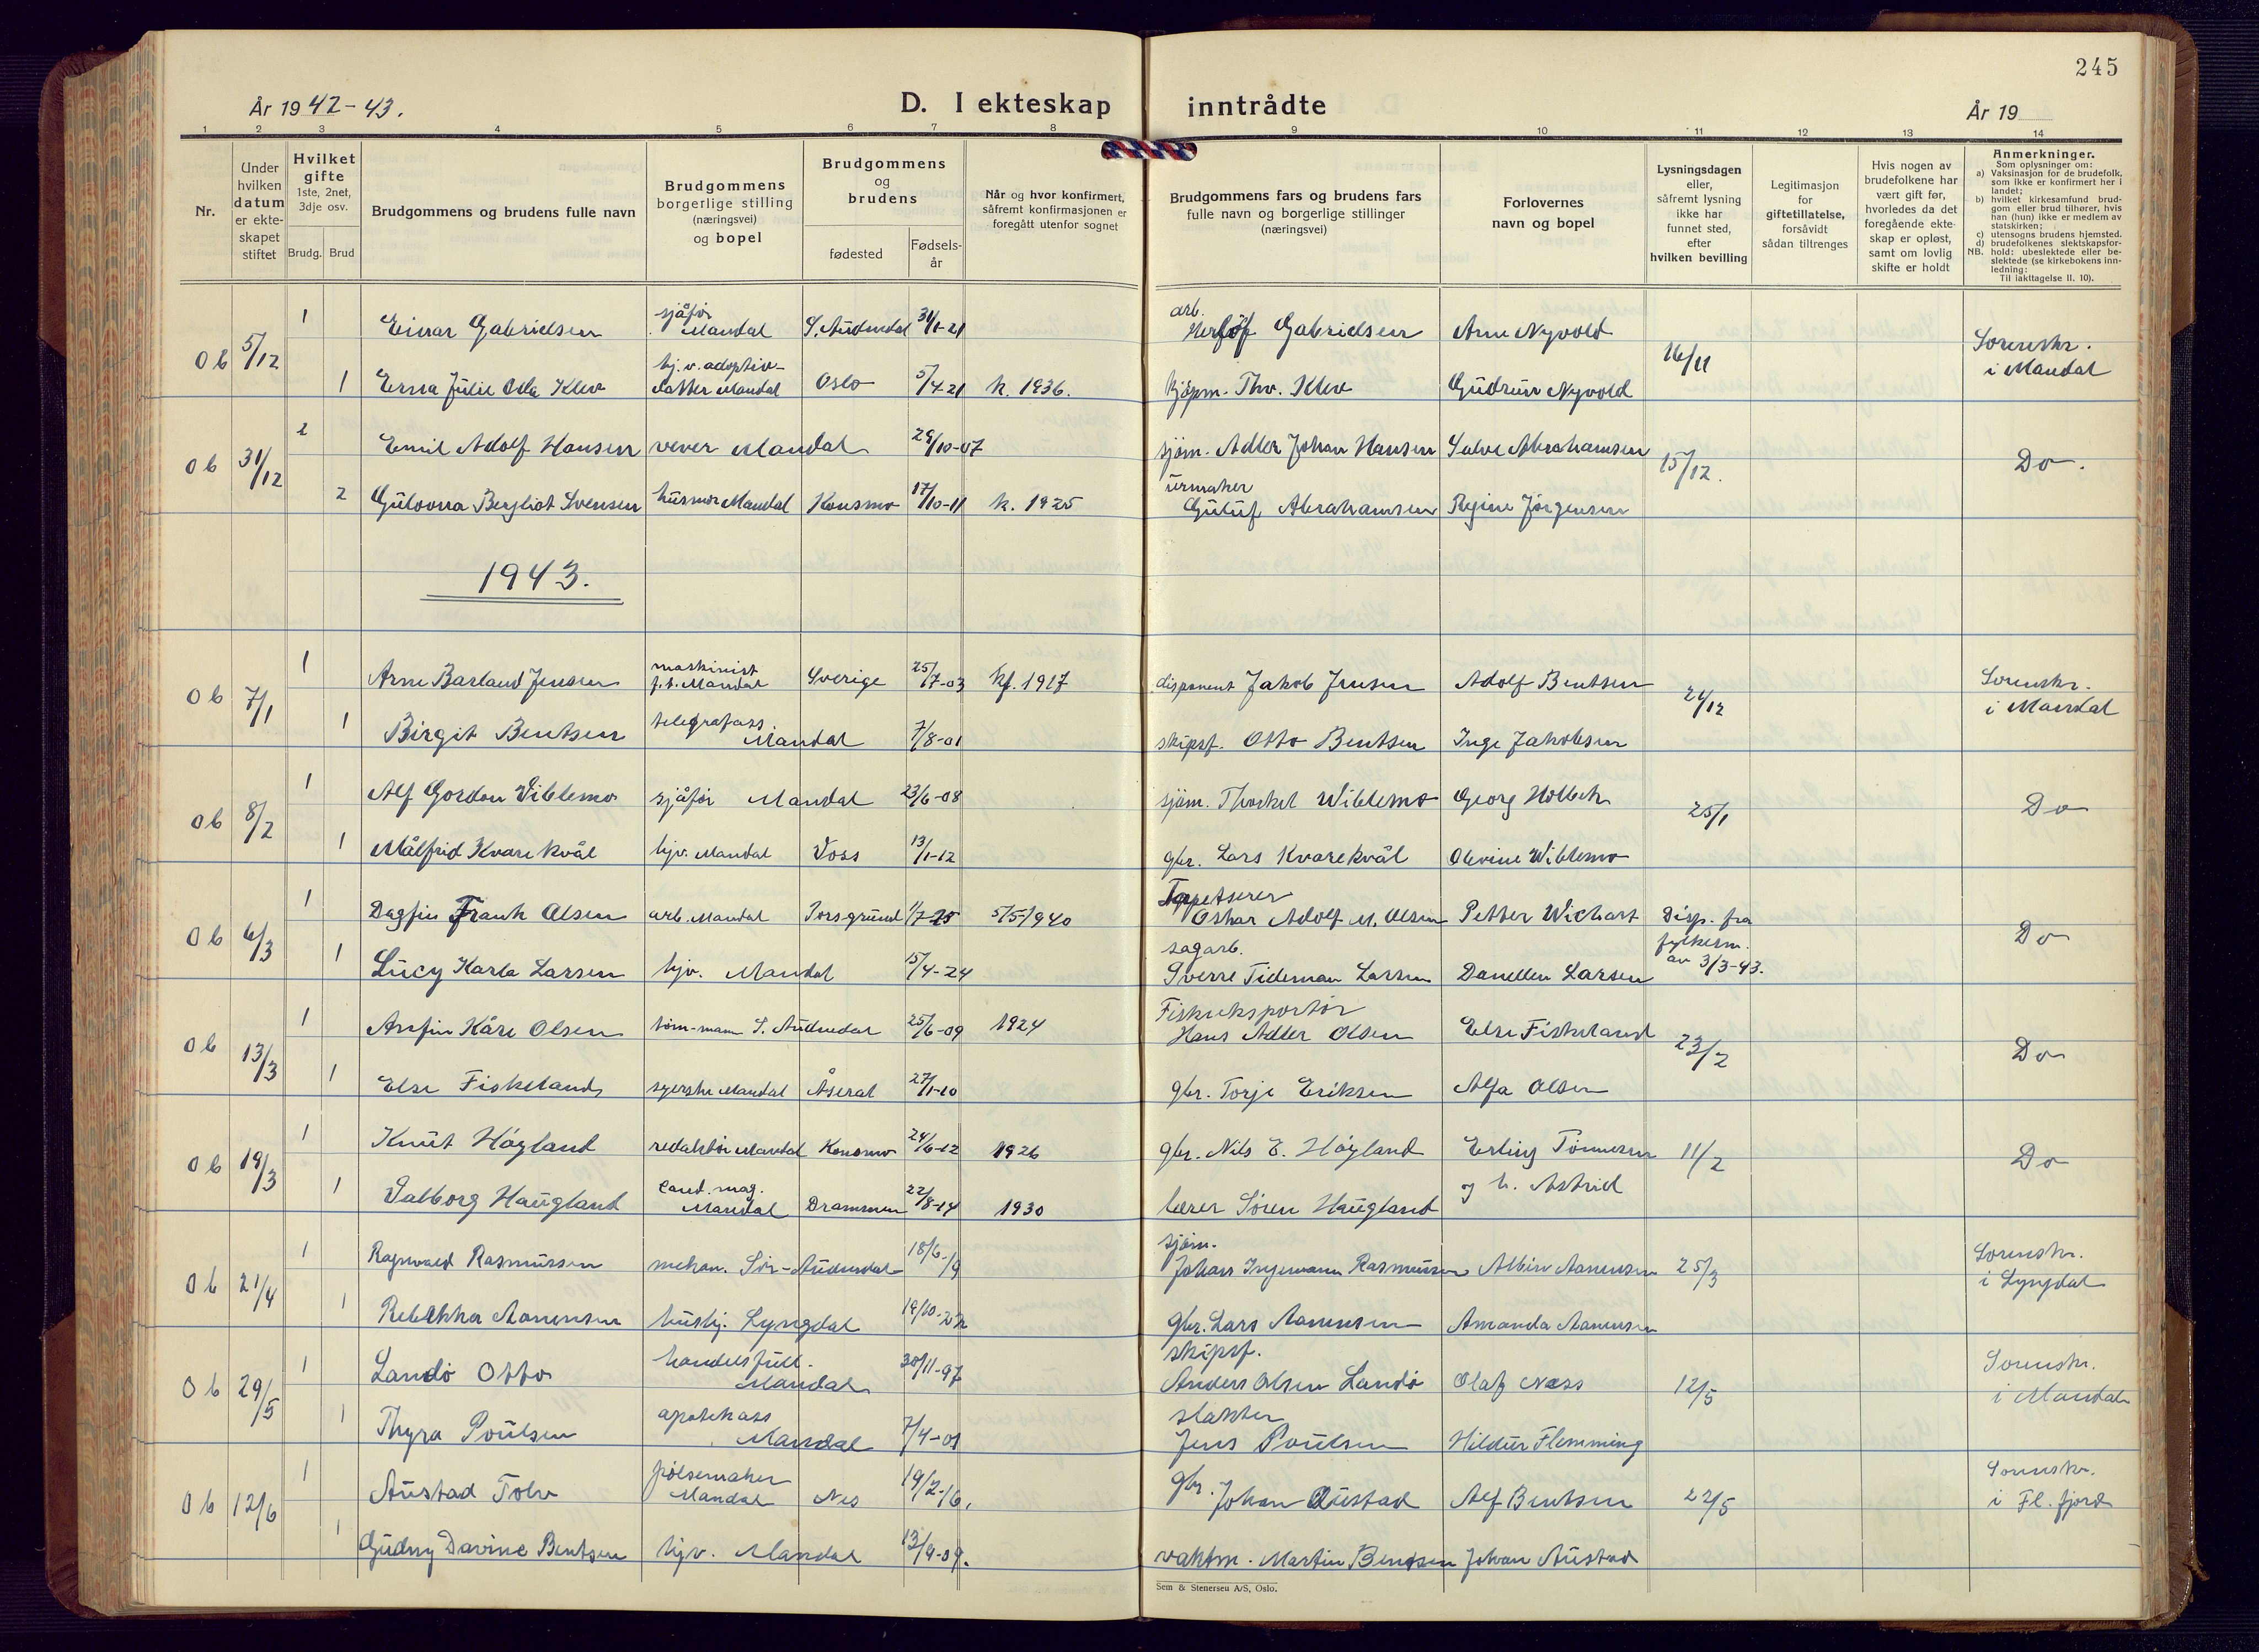 245
År 1942-43.
D. I ekteskap inntrådte
År 19
1 2 3 4 5 6 7 8 9 10 11 12 13 14
Nr.
Under hvilken datum er ekteskapet stiftet
Hvilket gifte 1ste, 2net, 3dje osv.
Brudg. Brud
Brudgommens og brudens fulle navn
Brudgommens borgerlige stilling (næringsvei) og bopel
Brudgommens og brudens
fødested
Fødselsår
Når og hvor konfirmert, såfremt konfirmasjonen er foregått utenfor sognet
Brudgommens fars og brudens fars fulle navn og borgerlige stillinger (næringsvei)
Forlovernes navn og bopel
Lysningsdagen eller, såfremt lysning ikke har funnet sted, efter hvilken bevilling
Legitimasjon for giftetillatelse, forsåvidt sådan tiltrenges
Hvis nogen av brudefolkene har vært gift før, hvorledes da det foregående ekteskap er opløst, samt om lovlig skifte er holdt
Anmerkninger.
Som oplysninger om:
a) Vaksinasjon for de brudefolk, som ikke er konfirmert her i landet;
b) hvilket kirkesamfund brudgom eller brud tilhører, hvis han (hun) ikke er medlem av statskirken;
c) utensogns brudens hjemsted.
d) brudefolkenes slektskapsforhold: ubeslektede eller beslektede (se kirkebokens innledning:
NB.
Til iakttagelse II. 10).
Ob 5/12 1 Einar Gabrielsen sjåfør Mandal S. Audnedal 31/1-21 arb. Gabrielsen Arne Nyvold 16/11 Sorenskr. i Mandal
1 Erna Julie Osla Klev hj. v. adoptivdatter Mandal Oslo 5/4 21 k. 1936. kjøpm. Thv. Klev Gudrun Nyvold
Ob 31/12 2 Emil Adolf Hansen vever Mandal 29/10-07 sjøm. Adler Johan Hansen Salve Abrahamsen 15/12. Do.
2 Gulovna Bergliot Svensen husmor Mandal Konsmo 17/10-11 k. 1925 urmaker Guluf Abrahamsen Regine Jørgensen
1943.
Ob 7/1 1 Arne Barland Jensen maskinist f.t. Mandal Sverige 25/7-03 kf. 1917 disponent Jakob Jensen Adolf Bentsen 24/12 Sorenskr. i Mandal
1 Birgit Bentsen telegrafass. Mandal 7/8-01 skipsf. Otto Bentsen Inge Jakobsen
Ob 8/2 1 Alf Gordon Viblemo sjåfør Mandal 23/6-08 sjøm. Thorkel Wiblemo Georg Holbek 25/1 Do
1 Målfrid Kvarekvål hjv. Mandal Voss 13/1-12 gbr. Lars Kvarekvål Olevine Wiblemo
Ob 6/3 1 Dagfin Frank Olsen arb. Mandal Porsgrund 1/7-15 5/5 1940 Tapetserer Oskar Adolf M. Olsen Petter Wichart Disp. fra fylkesm. av 3/3-43. Do
1 Lucy Karla Larsen hjv. Mandal 15/4-24 sagarb. Sverre Tideman Larsen Danellen Larsen
Ob 13/3 1 Arnfin Kåre Olsen tøm-mann S. Audnedal 25/6-09 1924 Fiskeksportør Hans Adler Olsen Else Fiskeland 23/2 Do
1 Else Fiskeland syerske Mandal Åseral 27/1-10 gbr. Torje Eriksen Alfa Olsen
Ob 19/3 1 Knut Høyland redaktør Mandal Konsmo 24/6-12 1926 gbr. Nils E. Høyland Erling Tønnesen og h. Astrid 11/2 Do
1 Valborg Haugland cand. mag. Mandal Drammen 22/8-14 1930 lærer Søren Haugland
Ob 21/4 1 Ragnvald Rasmussen mekan. Sør-Audnedal 18/6-19 sjøm. Johans Ingemann Rasmussen Albin Aanensen 25/3 Sorenskr. i Lyngdal
1 Rebekka Aanensen hushj. Lyngdal 19/10-22 gbr. Lars Aanensen Amanda Aanensen
Ob 29/5 1 Landø Otto handelsfull. Mandal 30/11-97 skipsf. Anders Olsen Landø Olaf Næss 12/5 Sorenskr. i Mandal
1 Thyra Poulsen apotekass Mandal 7/4-01 slakter Jens Poulsen Hildur Flemming
Ob 12/6 1 Austad Tolv pølsemaker Mandal Nes 19/2-16. gbr. Johan Austad Alf Bentsen 22/5 Sorenskr. i Fl. fjord
1 Gudny Davine Bentsen hjv. Mandal 13/9-09. vaktm. Martin Bentsen Johan Austad
Sem & Stenersen A/S, Oslo.